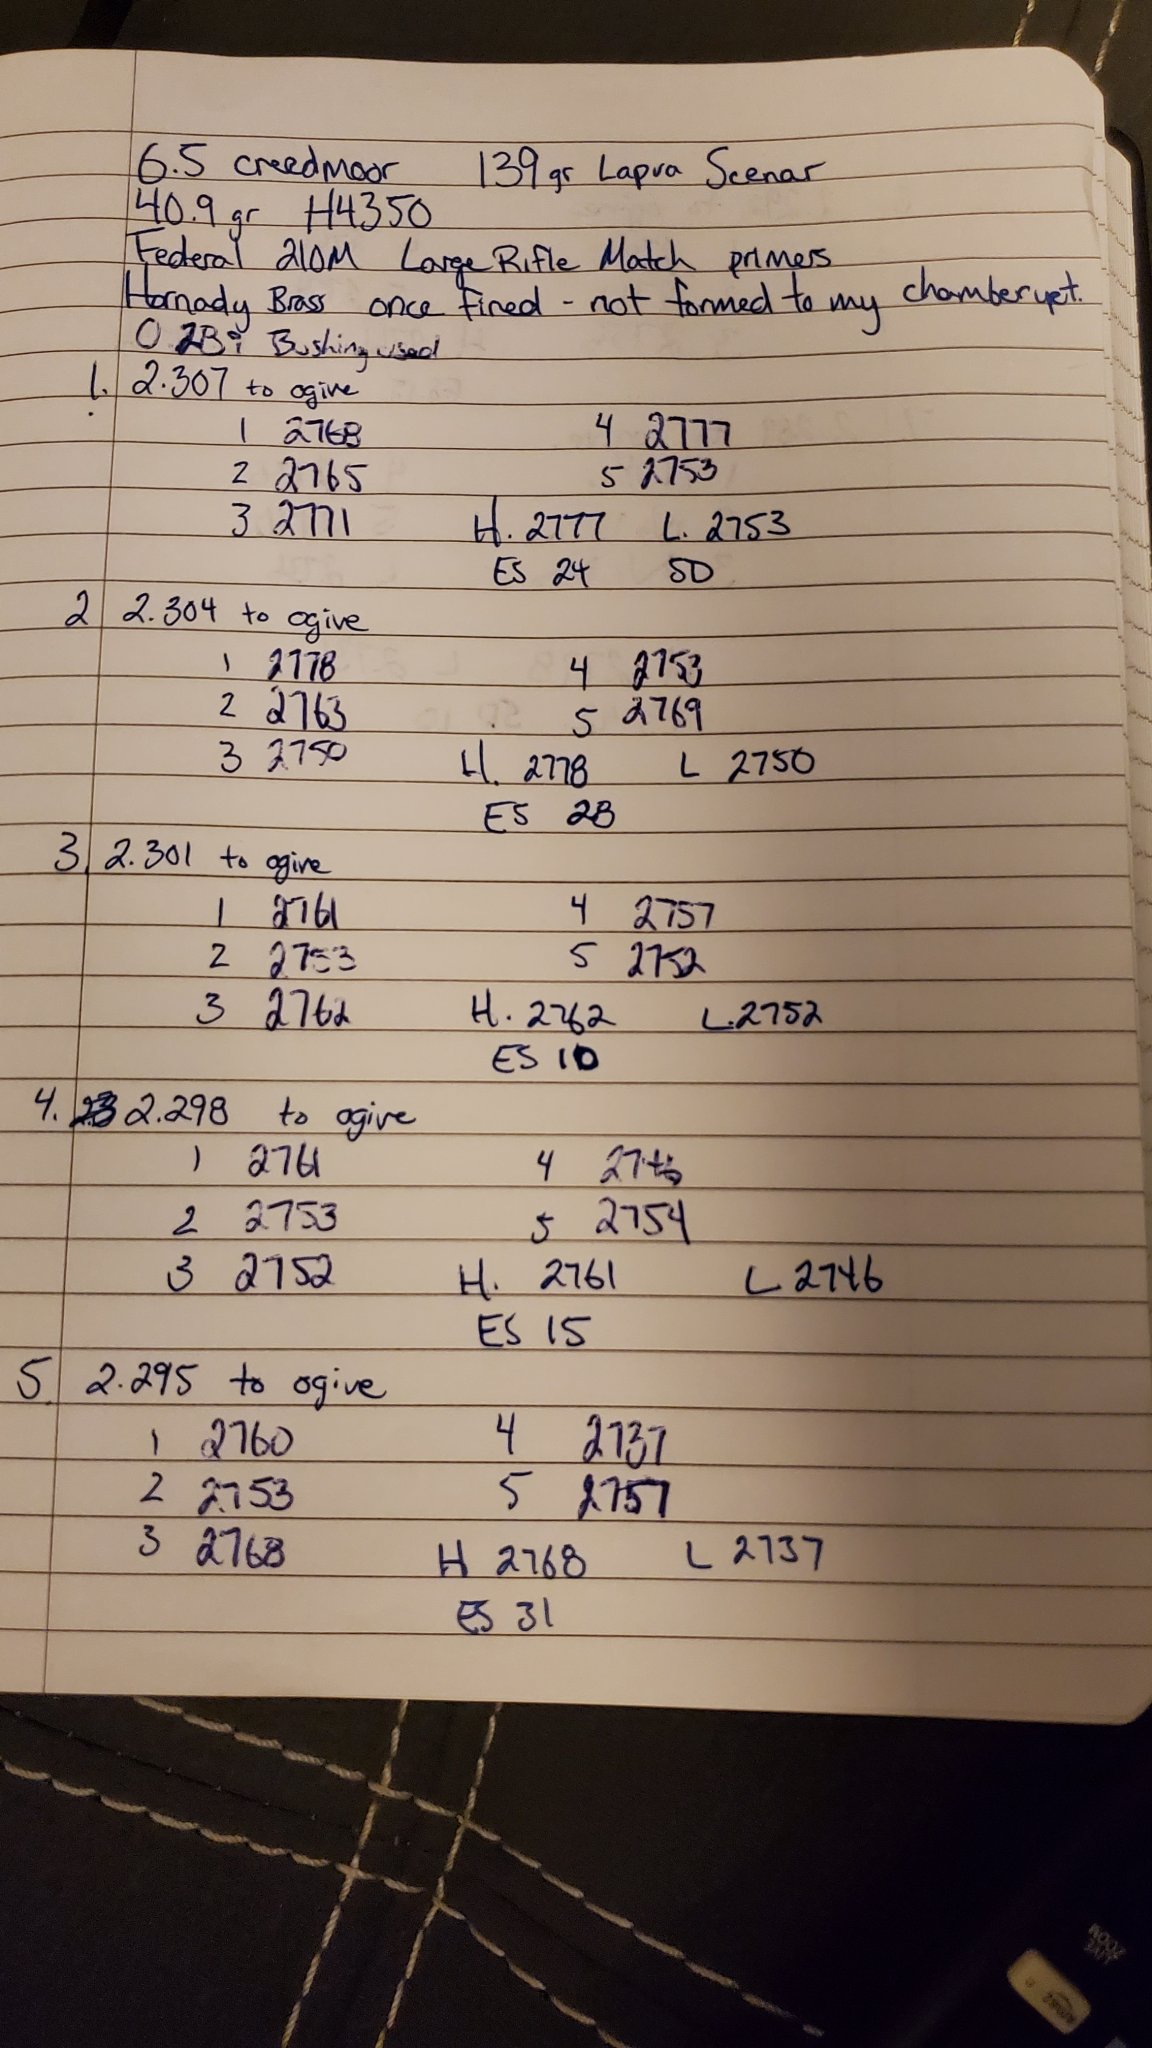 6.5 creedmoor 139gr Lapua Scenar
40.9 gr H4350
Federal 210M Large Rifle Match primers
Hornady Brass once fired - not formed to my chamber yet.
Bushing used
1. 2.307 to ogive
1 2768 4 2777
2 2765 5 2753
3 2771 H. 2777 L. 2753
ES 24 SD
2 2.304 to ogive
1 2778 4 2753
2 2763 5 2769
3 2750 H. 2778 L 2750
ES 28
3. 2.301 to ogive
1 2761 4 2757
2 2753 5 2752
3 2762 H. 2762 L. 2752
ES 10
4. 2.298 to ogive
1 2761 4 2746
2 2753 5 2754
3 2752 H. 2761 L 2746
ES 15
5. 2.295 to ogive
1 2760 4 2737
2 2753 5 2757
3 2768 H 2768 L 2737
ES 31